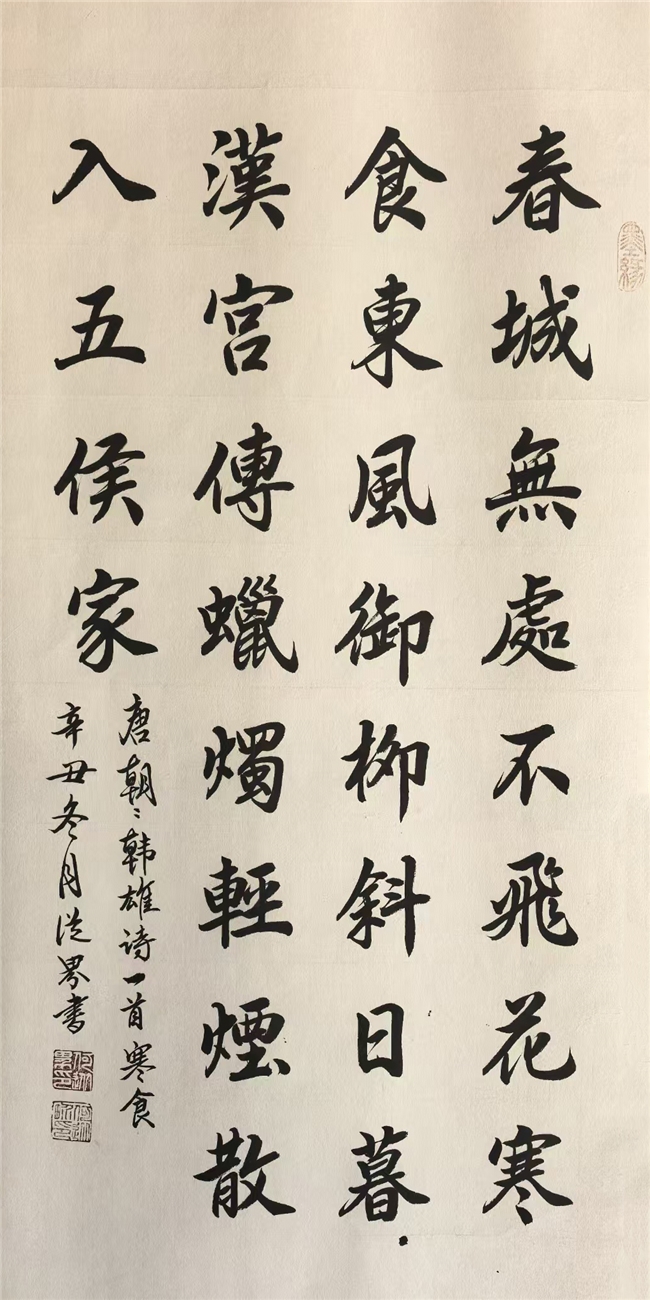 春城無處不飛花寒
食東風御柳斜日暮
漢宮傳蠟燭輕煙散
入五侯家
唐朝〻韩雄诗一首寒食
辛丑冬月從界書